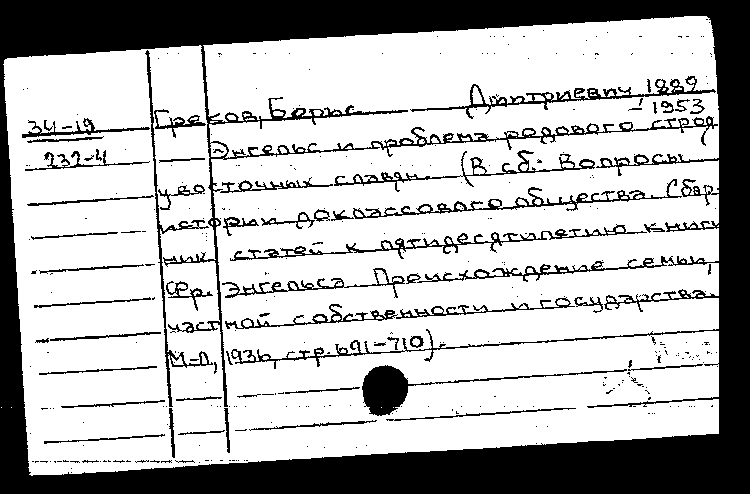 34-19
232-4
Греков, Борис Дмитриевич 1882
- 1953
Энгельс и проблема родового строя
у восточных славян. (В сб.: Вопросы
истории доклассового общества. Сбор-
ник статей к пятидесятилетию книги
Фр. Энгельса. Происхождение семьи,
частной собственности и государства.
М-Л, 1936, стр. 691-710).